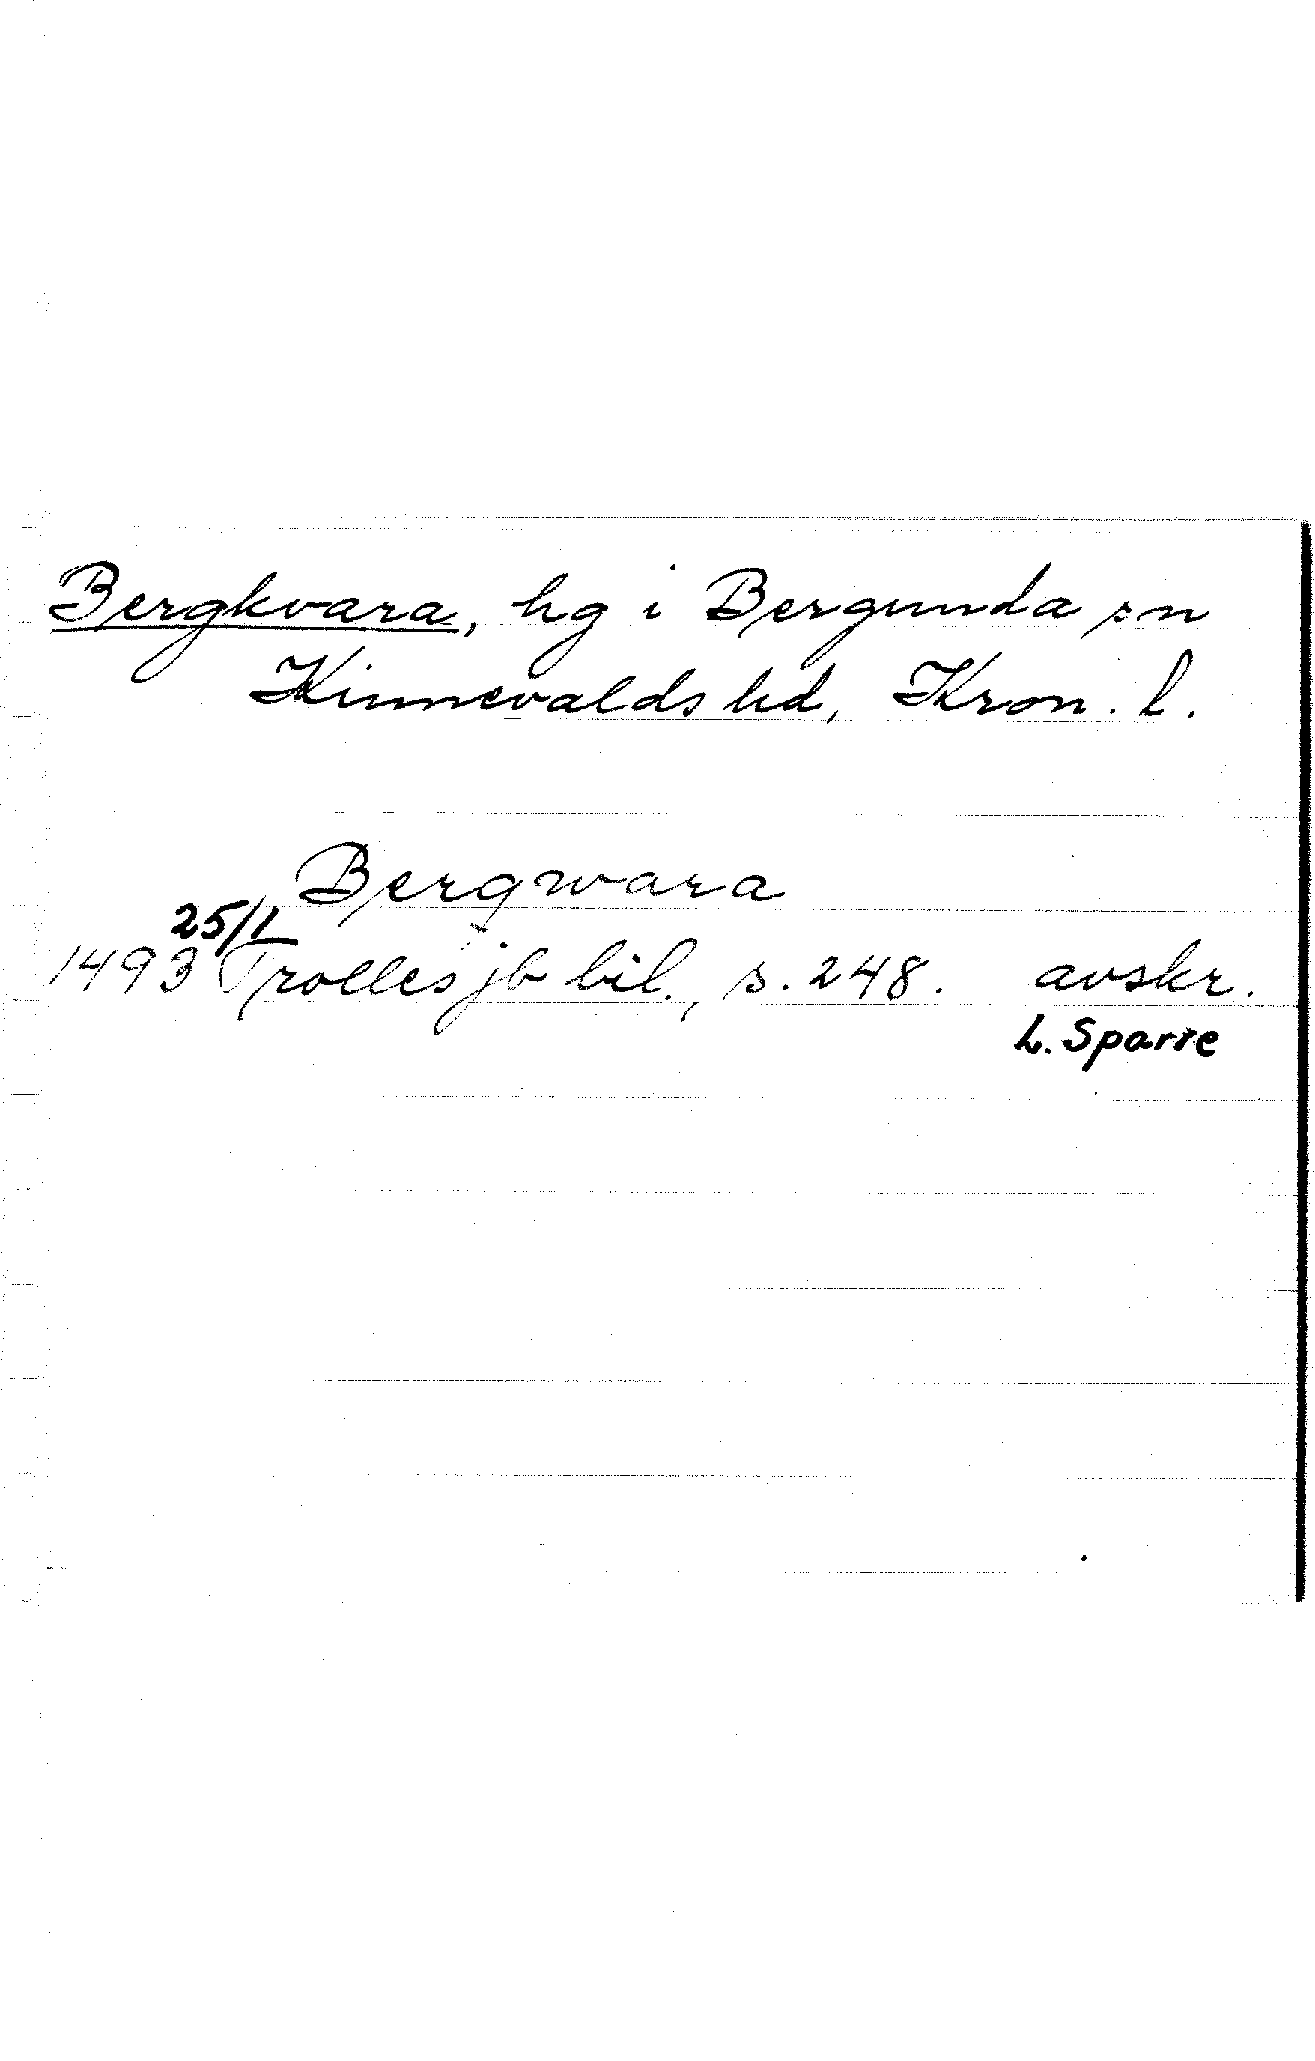 Bergkvara, hg i Bergunda sn
Kinnevalds hd, Kron. l.
Bergwara
25/1
1493 Trolles jb bil., s. 248. avskr.
L. Sparre